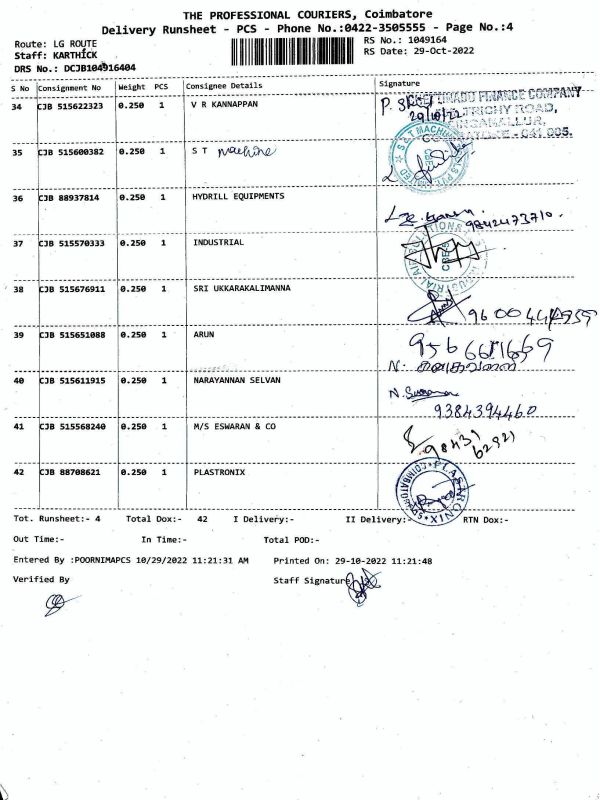 THE PROFESSIONAL COURIERS, Coimbatore
Delivery Runsheet - PCS - Phone No.:0422-3505555 - Page No.:4
Route: LG ROUTE
RS No.: 1049164
Staff: KARTHICK
RS Date: 29-Oct-2022
DRS No.: DCJB104916404
S No Consignment No Weight PCS Consignee Details Signature
34 CJB 515622323 0.250 1 V R KANNAPPAN
29/10/22
35 CJB 515600382 0.250 1 S T machine
36 CJB 88937814 0.250 1 HYDRILL EQUIPMENTS
9842473710.
37 CJB 515570333 0.250 1 INDUSTRIAL
38 CJB 515676911 0.250 1 SRI UKKARAKALIMANNA
39 CJB 515651088 0.250 1 ARUN
40 CJB 515611915 0.250 1 NARAYANNAN SELVAN
9384394460
41 CJB 515568240 0.250 1 M/S ESWARAN & CO
98431
62921
42 CJB 88708621 0.250 1 PLASTRONIX
PLASTRONIX
Tot. Runsheet:- 4 Total Dox:- 42 I Delivery:- II Delivery:- RTN Dox:-
Out Time:- In Time:- Total POD:-
Entered By :POORNIMAPCS 10/29/2022 11:21:31 AM Printed On: 29-10-2022 11:21:48
Verified By Staff Signature